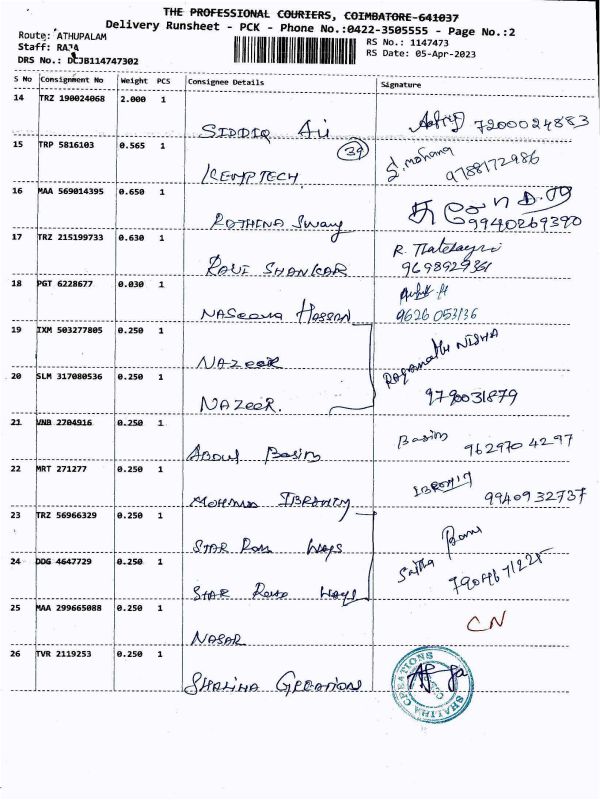 THE PROFESSIONAL COURIERS, COIMBATORE-641037
Delivery Runsheet - PCK - Phone No.:0422-3505555 - Page No.:2
Route: ATHUPALAM
Staff: RAJA
DRS No.: DCJB114747302
RS No.: 1147473
RS Date: 05-Apr-2023
S No Consignment No Weight PCS Consignee Details Signature
14 TRZ 190024068 2.000 1
SIDDIQ Ali 7200024883
15 TRP 5816103 0.565 1
39 S. mohana
KEMPTECH. 9788172986
16 MAA 569014395 0.650 1
RATHENA Swamy 9940269390
17 TRZ 215199733 0.630 1
RAVI SHANKAR R.
9698929361
18 PGT 6228677 0.030 1
NASeema HASSAN 9626 053136
19 IXM 503277805 0.250 1
NAZEER NISHA
20 SLM 317080536 0.250 1
NAZEER. 9790031879
21 VNB 2704916 0.250 1
ABDUL Basim Basim 962970 4297
22 MRT 271277 0.250 1
IBRAHIM IBRAHIM 9940932737
23 TRZ 56966329 0.250 1
STAR Ways
24 DDG 4647729 0.250 1
STAR Ways Saitha Banu
7904671225
25 MAA 299665088 0.250 1
NASAR CN
26 TVR 2119253 0.250 1
SHALIHA CREATIONS
SHALIHA CREATIONS